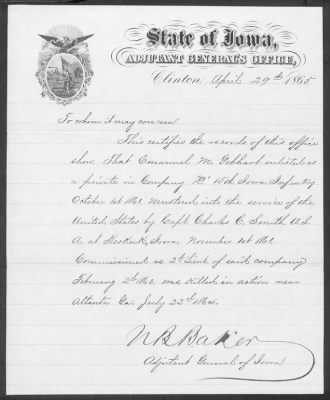 State of Iowa,
ADJUTANT GENERAL'S OFFICE,
Clinton, April 29th 1865
To whom it may concern
This certifies the records of this office
show That Emanuel M. Gebhart enlisted as
a private in Company "B" 15th Iowa Infantry
October 1st 1861. Mustered into the service of the
United States by Capt. Charles C. Smith U.S.
A. at Keokuk, Iowa, November 1st 1861.
Commissioned as 2d Lieut of said company
February 2d 1863. was killed in action near
Atlanta Ga July 22d 1864.
N B Baker
Adjutant General of Iowa